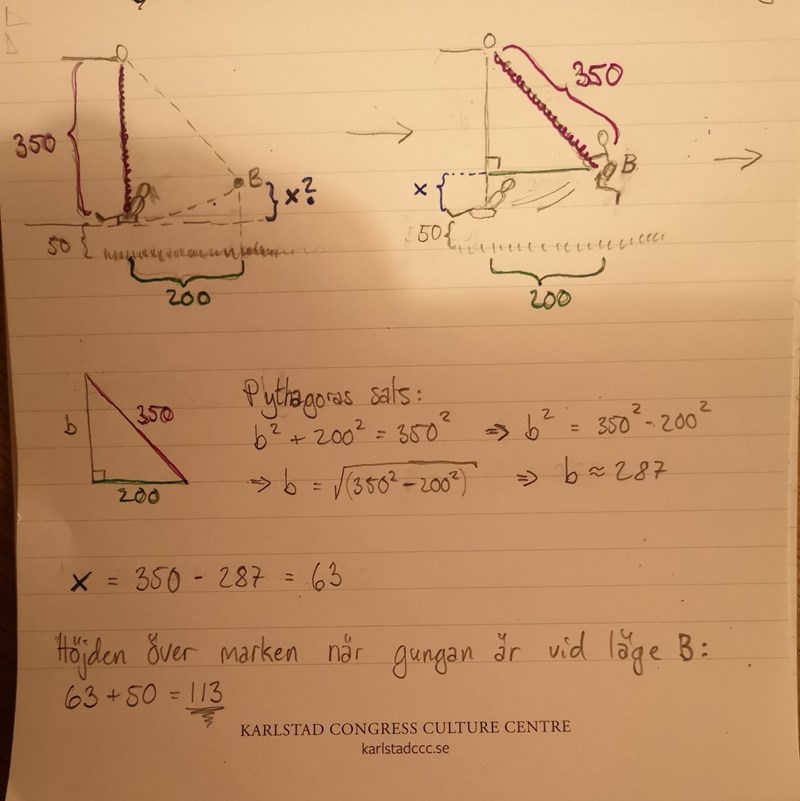 350
B
x?
50
200
350
B
x
50
200
b
350
200
Pythagoras sats:
b² + 200² = 350² ⇒ b² = 350² - 200²
⇒ b = √(350² - 200²) ⇒ b ≈ 287
x = 350 - 287 = 63
Höjden över marken när gungan är vid läge B:
63 + 50 = 113
KARLSTAD CONGRESS CULTURE CENTRE
karlstadccc.se